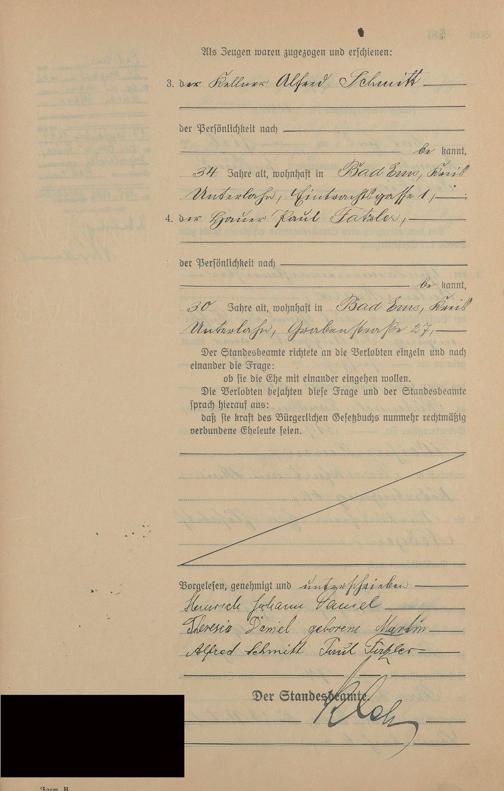 Als Zeugen waren zugezogen und erschienen:
3. der Kellner Alfred Schmitt
der Persönlichkeit nach
be kannt,
34 Jahre alt, wohnhaft in Bad Ems, Kreis
Unterlahn, Eintrachtsgasse 1,
4. der Hauer Paul Fatzler,
der Persönlichkeit nach
be kannt,
30 Jahre alt, wohnhaft in Bad Ems, Kreis
Unterlahn, Grabenstraße 27,
Der Standesbeamte richtete an die Verlobten einzeln und nach
einander die Frage:
ob sie die Ehe mit einander eingehen wollen.
Die Verlobten bejahten diese Frage und der Standesbeamte
sprach hierauf aus:
daß sie kraft des Bürgerlichen Gesetzbuchs nunmehr rechtmäßig
verbundene Eheleute seien.
Vorgelesen, genehmigt und unterschrieben
Heinrich Johann
Theresia geborene Martin
Alfred Schmitt Paul Fatzler
Der Standesbeamte.
Form. B.